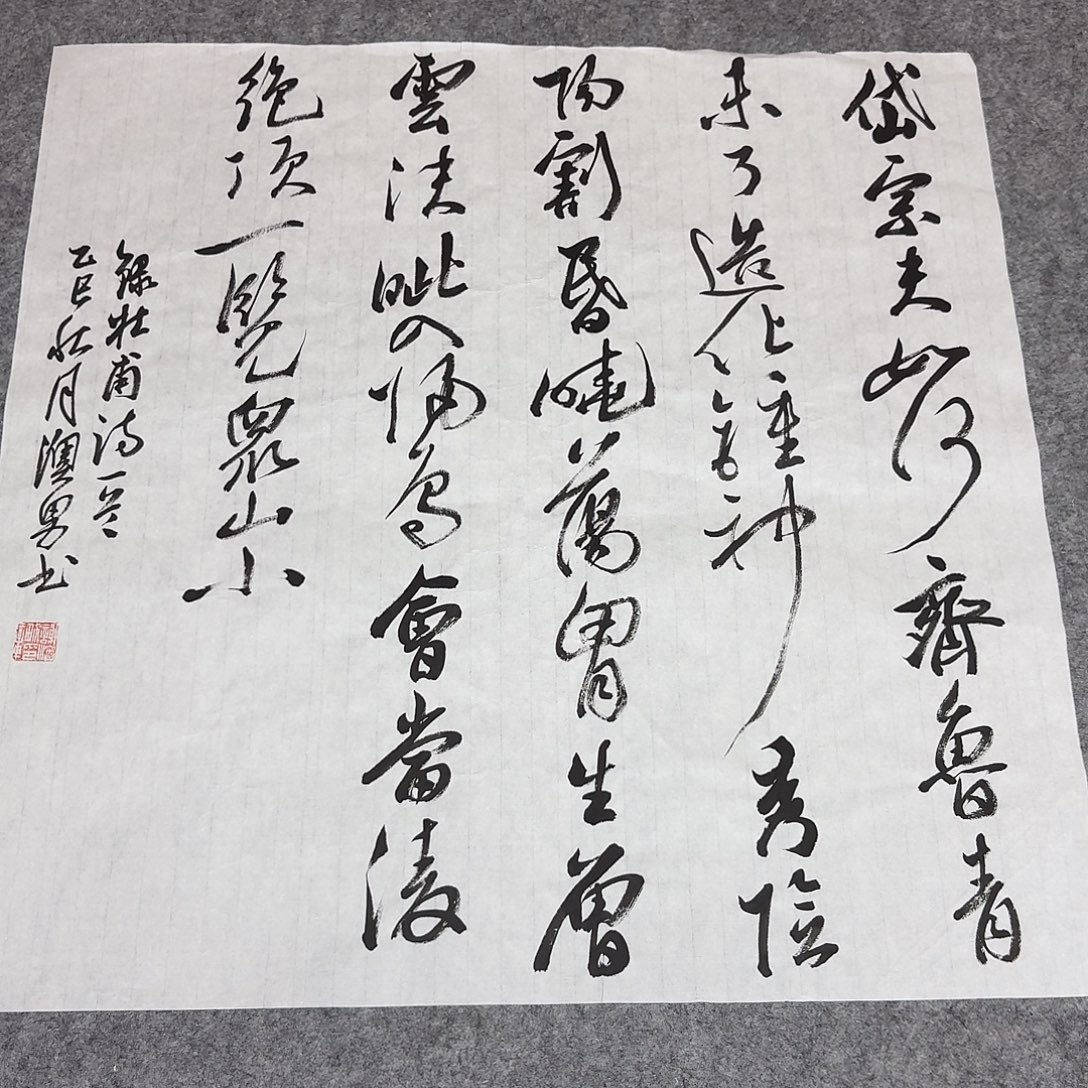 岱宗夫如何齊魯青
未了造化鍾神秀陰
陽割昏曉蕩胷生層
雲決眦入歸鳥會當淩
絶頂一覽眾山小
錄杜甫詩一首
乙巳秋月澳男书